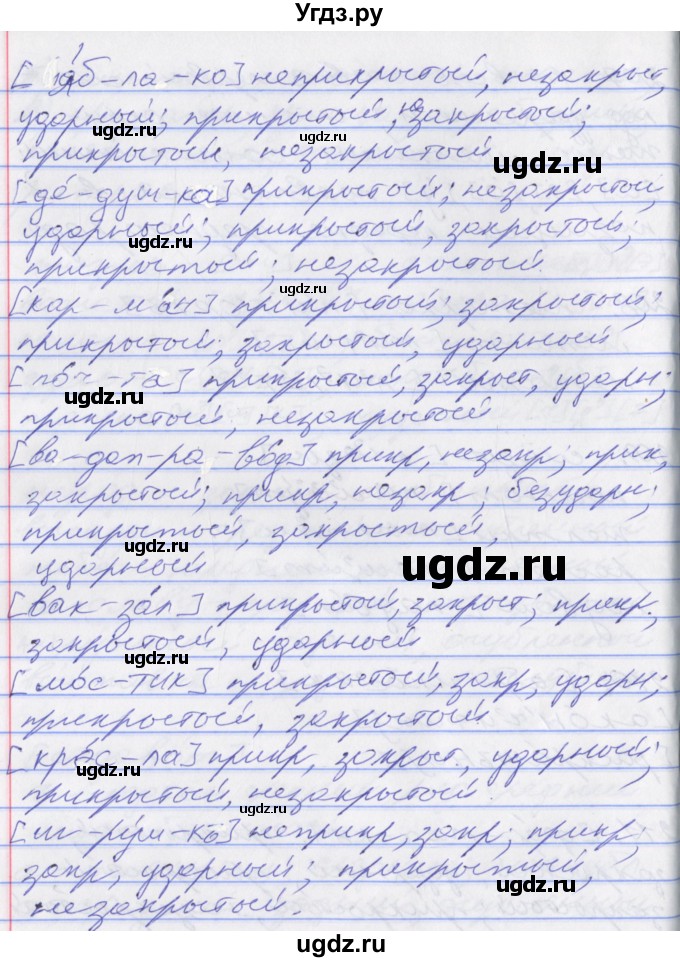 Угдз.ру
[а́б-ла-ко] неприкрытый, незакрыт,
ударный; прикрытый, незакрытый;
ugdz.ru ugdz.ru
прикрытый, незакрытый
ugdz.ru
[де-душ-ка] прикрытый; незакрытый,
ударный; прикрытый, закрытый,
ugdz.ru
прикрытый; незакрытый.
ugdz.ru
[кар-ма́н] прикрытый; закрытый;
прикрытый; закрытый, ударный
[по́ч-та] прикрытый, закрыт, ударн;
ugdz.ru ugdz.ru
прикрытый, незакрытый
[ва-дап-ра-во́д] прикр, незакр; прик,
закрытый; прикр, незакр; безударн;
прикрытый, закрытый,
ugdz.ru
ударный
ugdz.ru
[вак-за́л] прикрытый, закрыт; прикр.
закрытый, ударный
ugdz.ru
[мо́с-тик] прикрытый, закр, ударн;
прикрытый, закрытый
ugdz.ru
[кре́с-ла] прикр, закрыт, ударный;
прикрытый, незакрытый.
ugdz.ru
[иг-ру́ш-ка] неприкр, закр; прикр;
закр, ударный; прикрытый,
ugdz.ru ugdz.ru
незакрытый.
ugdz.ru